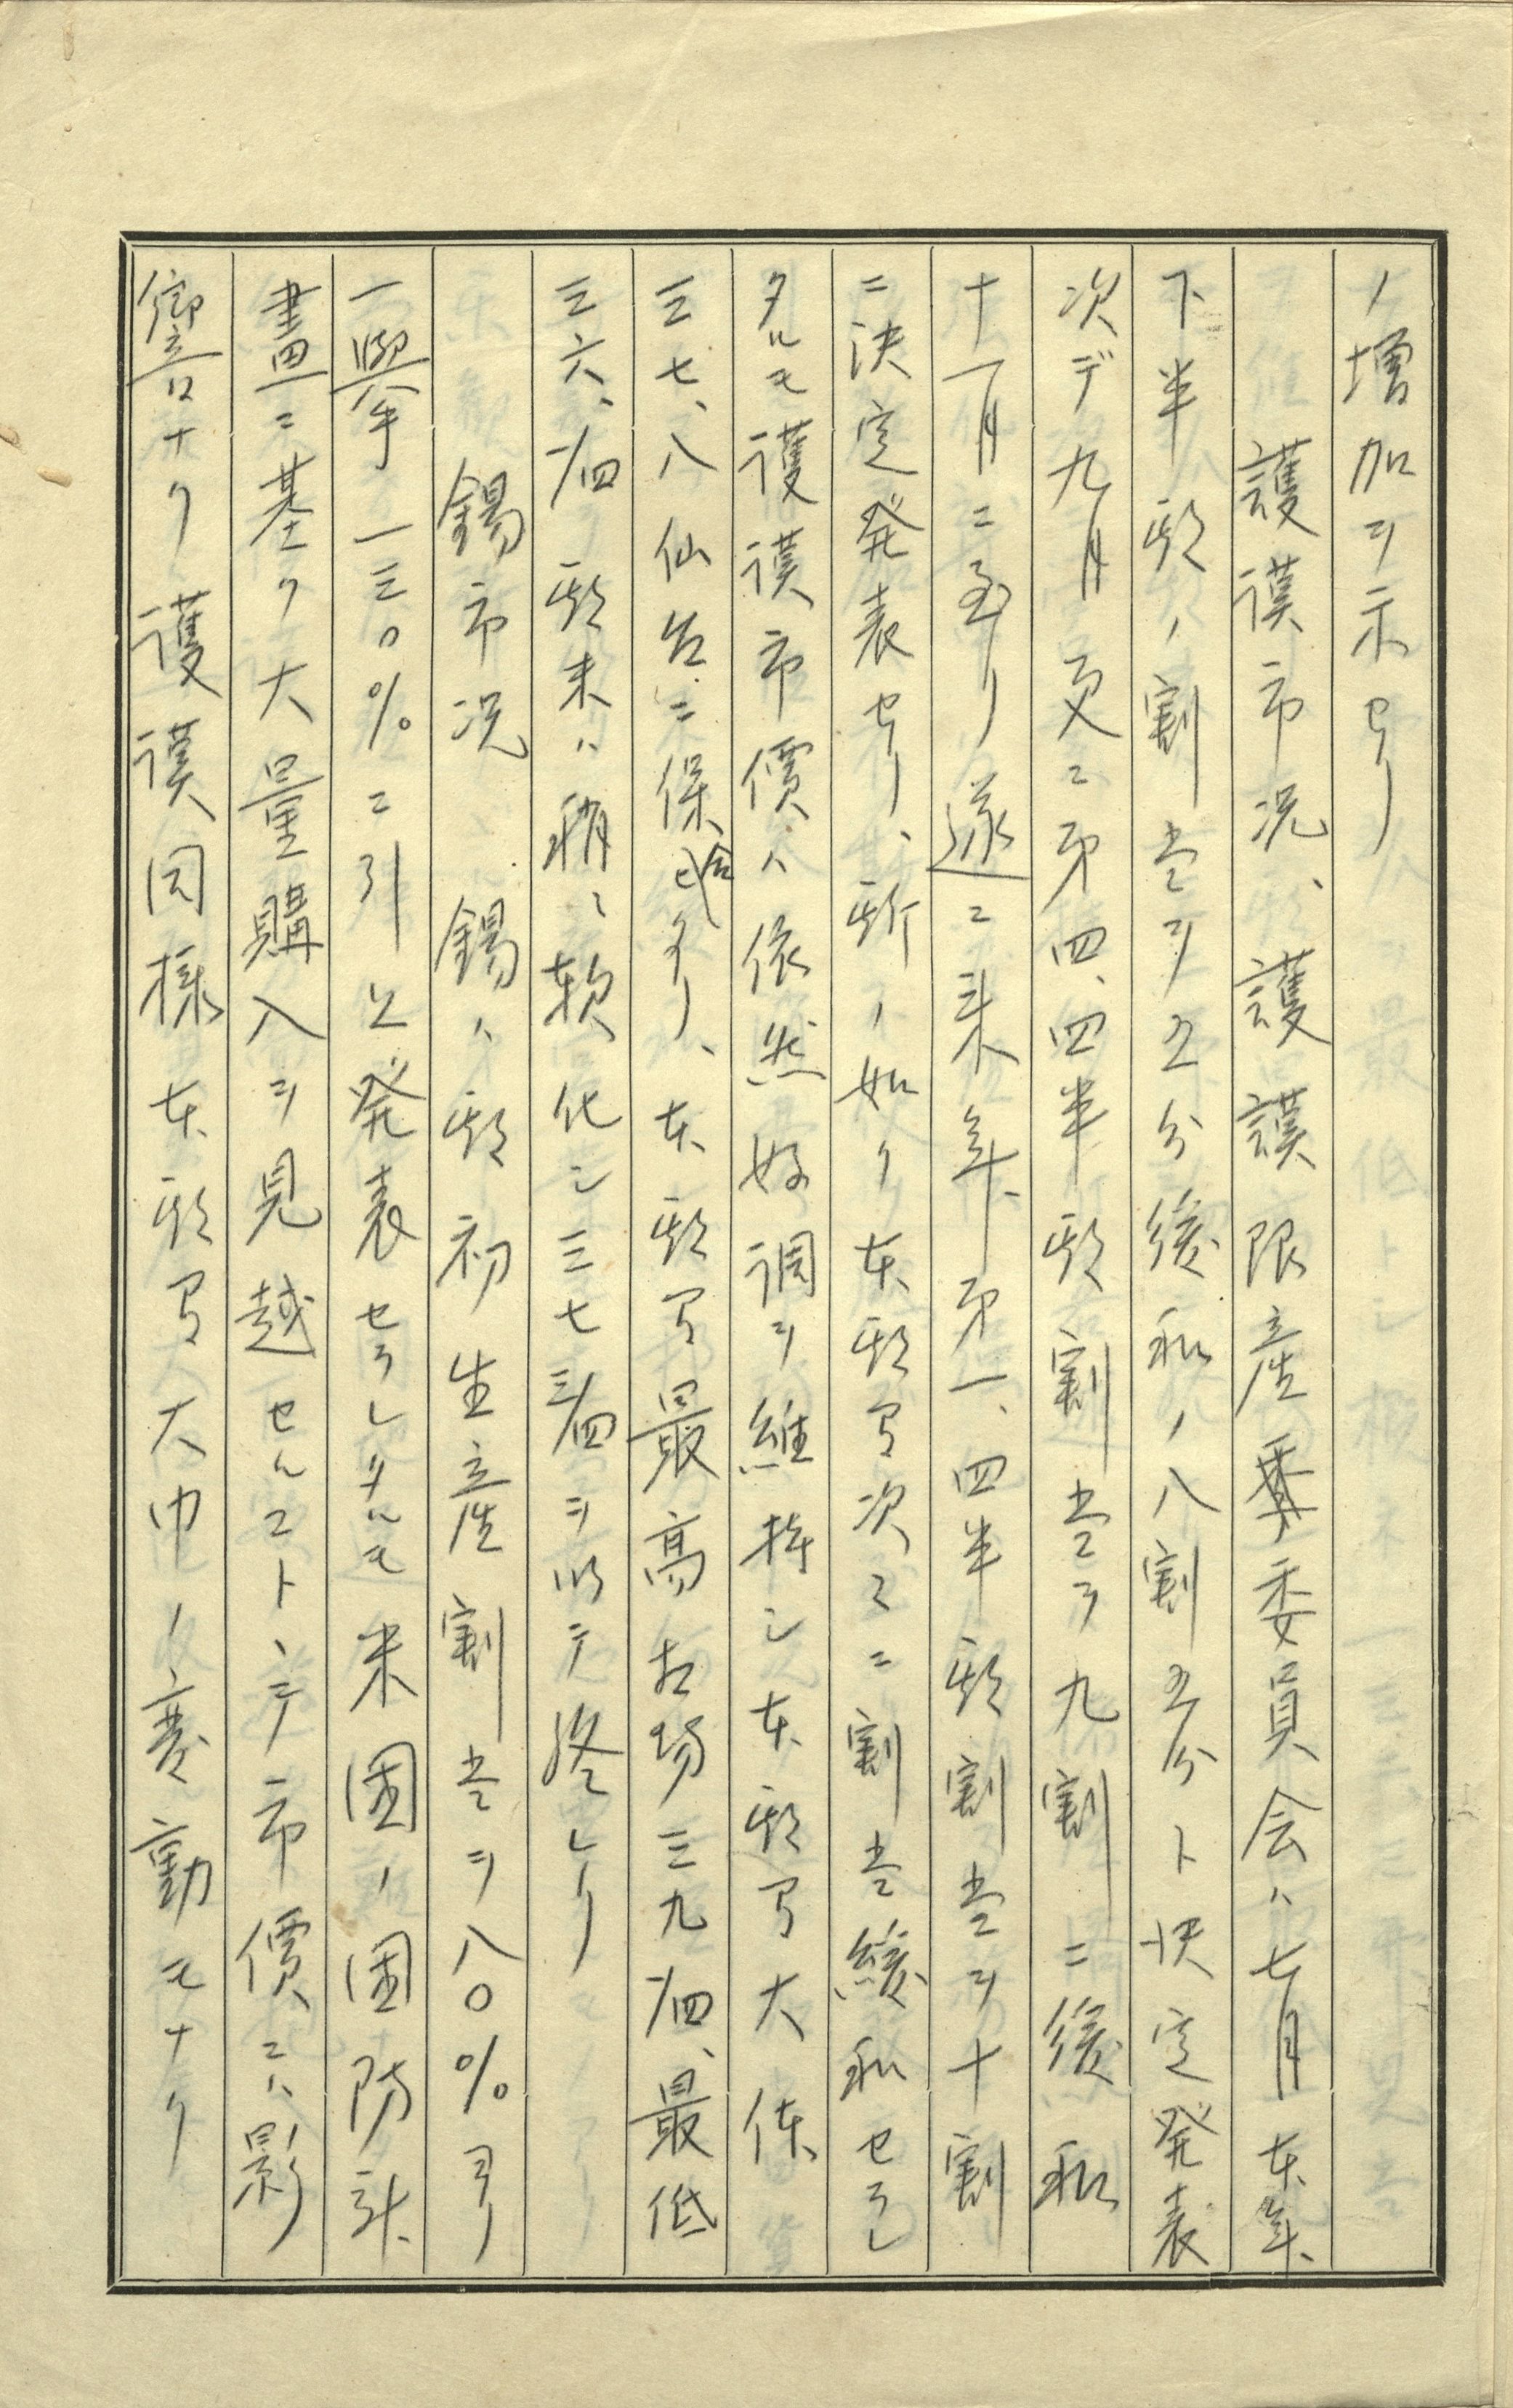 ノ増加ヲ示セリ
護謨市況、護謨限産委員会ハ七月本年
下半期ノ割当ヲ五分緩和ノ八割五分ト決定発表
次デ九月更ニ第四、四半期割当ヲ九割ニ緩和
十一月ニ至リ遂ニ来年第一、四半期割当ヲ十割
ニ決定発表セリ、斯ノ如ク本期間次々ニ割当緩和セラレ
タルモ護謨市價ハ依然好調ヲ維持シ本期間大体
三七、八仙台ニ保合タリ、本期間最高相場三九1/四、最低
三六、1/四期末ハ稍々軟化シ三七3/四ヲ以テ終レリ
錫市況 錫ハ期初生産割当ヲ八〇%ヨリ
一擧一三〇%ニ引上発表セラレタルモ米国ノ国防計
畫ニ基ク大量購入ヲ見越セルコトヽテ市價ニハ影
響ナク護謨同様本期間大巾ノ変動モナク